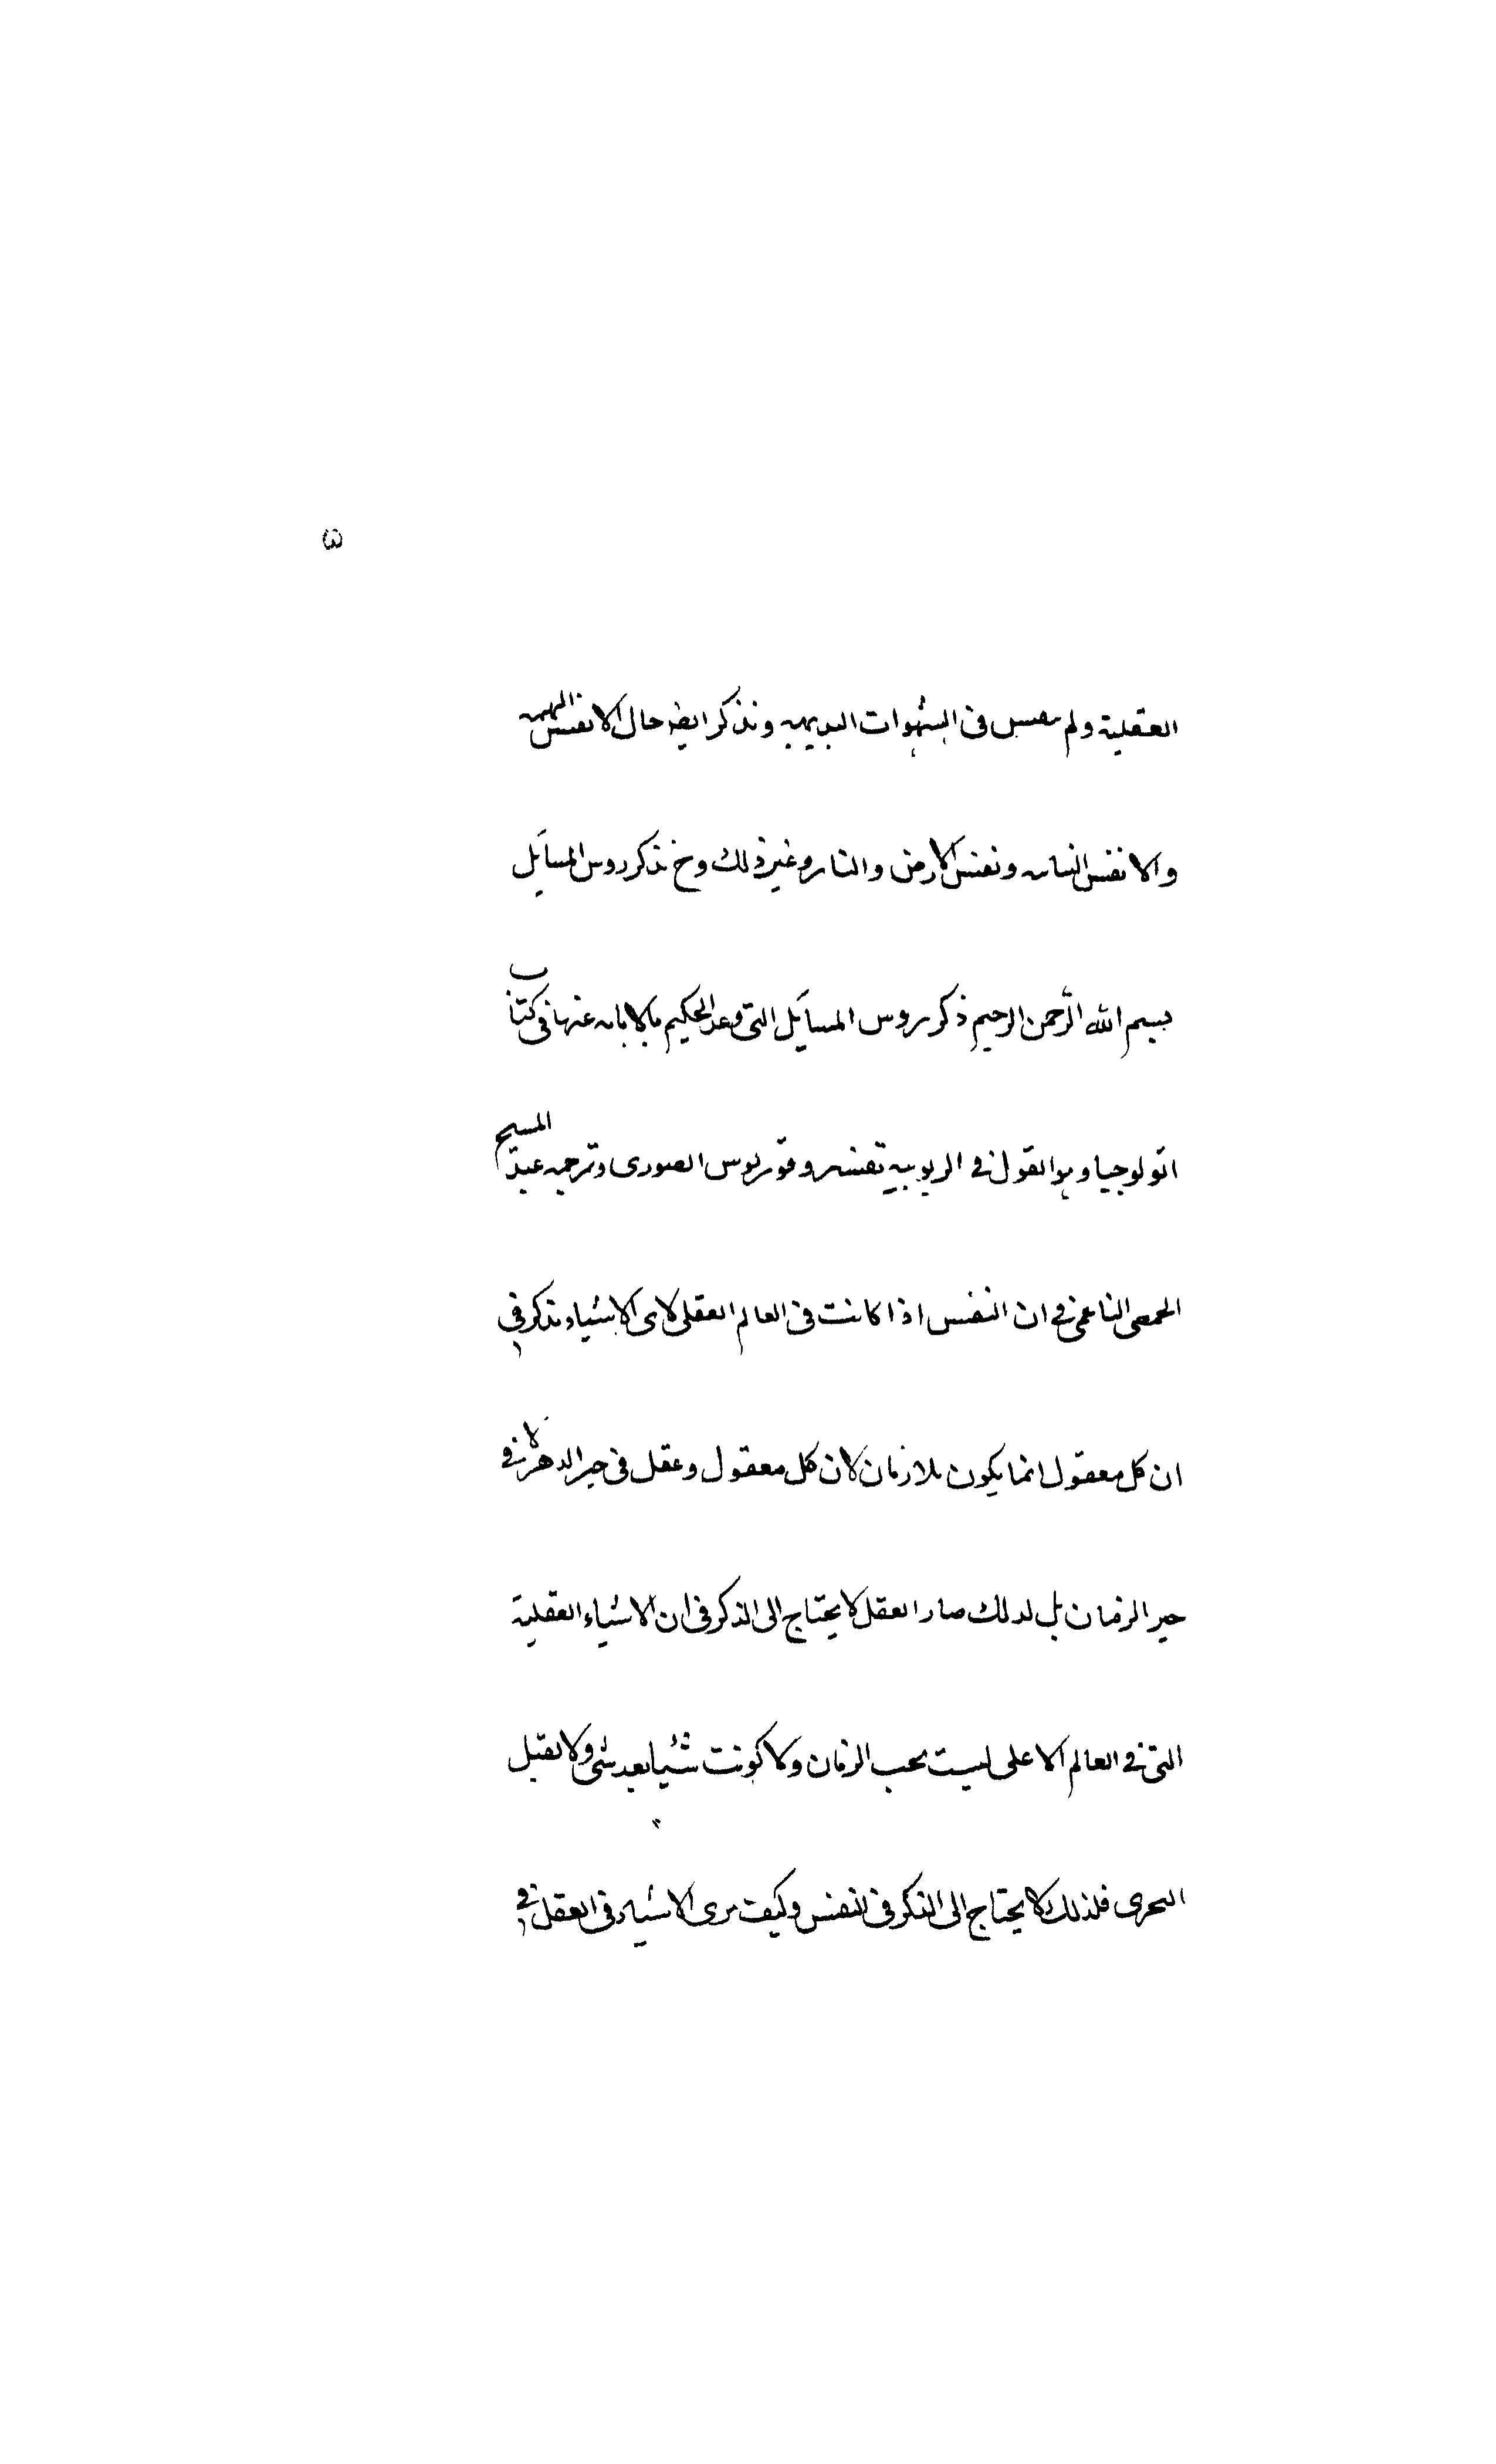 ۵
العقلية ولم ينغمس فى الشهوات البدنيه ونذكر ايضا حال الانفس البهيميه
والانفس النباتيه ونفس الارض والنار وغير ذلك وح نذكر روس المسآيل
بسم الله الرّحمن الرحيم ذكر روس المسآيل التى وعد الحكيم بالابانه عنها فى كتاب
اثولوجيا وهو القول فى الربوبيه تفسير فرفوريوس الصورى وترجمه عبد المسيح
الحمصى الناعمى فى ان النفس اذا كانت فى العالم العقلى لاى الاشياء تذكر فى
ان كل معقول انما يكون بلا زمان لان كل معقول وعقل فى حيز الدهر لا فى
حيز الزمان بل لذلك صار العقل لا يحتاج الى الذكر فى ان الاشياء العقلية
التى فى العالم الاعلى ليست تحت الزمان ولا كونت شيئا بعد شى ولا تقبل
التجزى فلذلك لا يحتاج الى الذكر فى النفس وكيف ترى الاشياء فى العقل فى